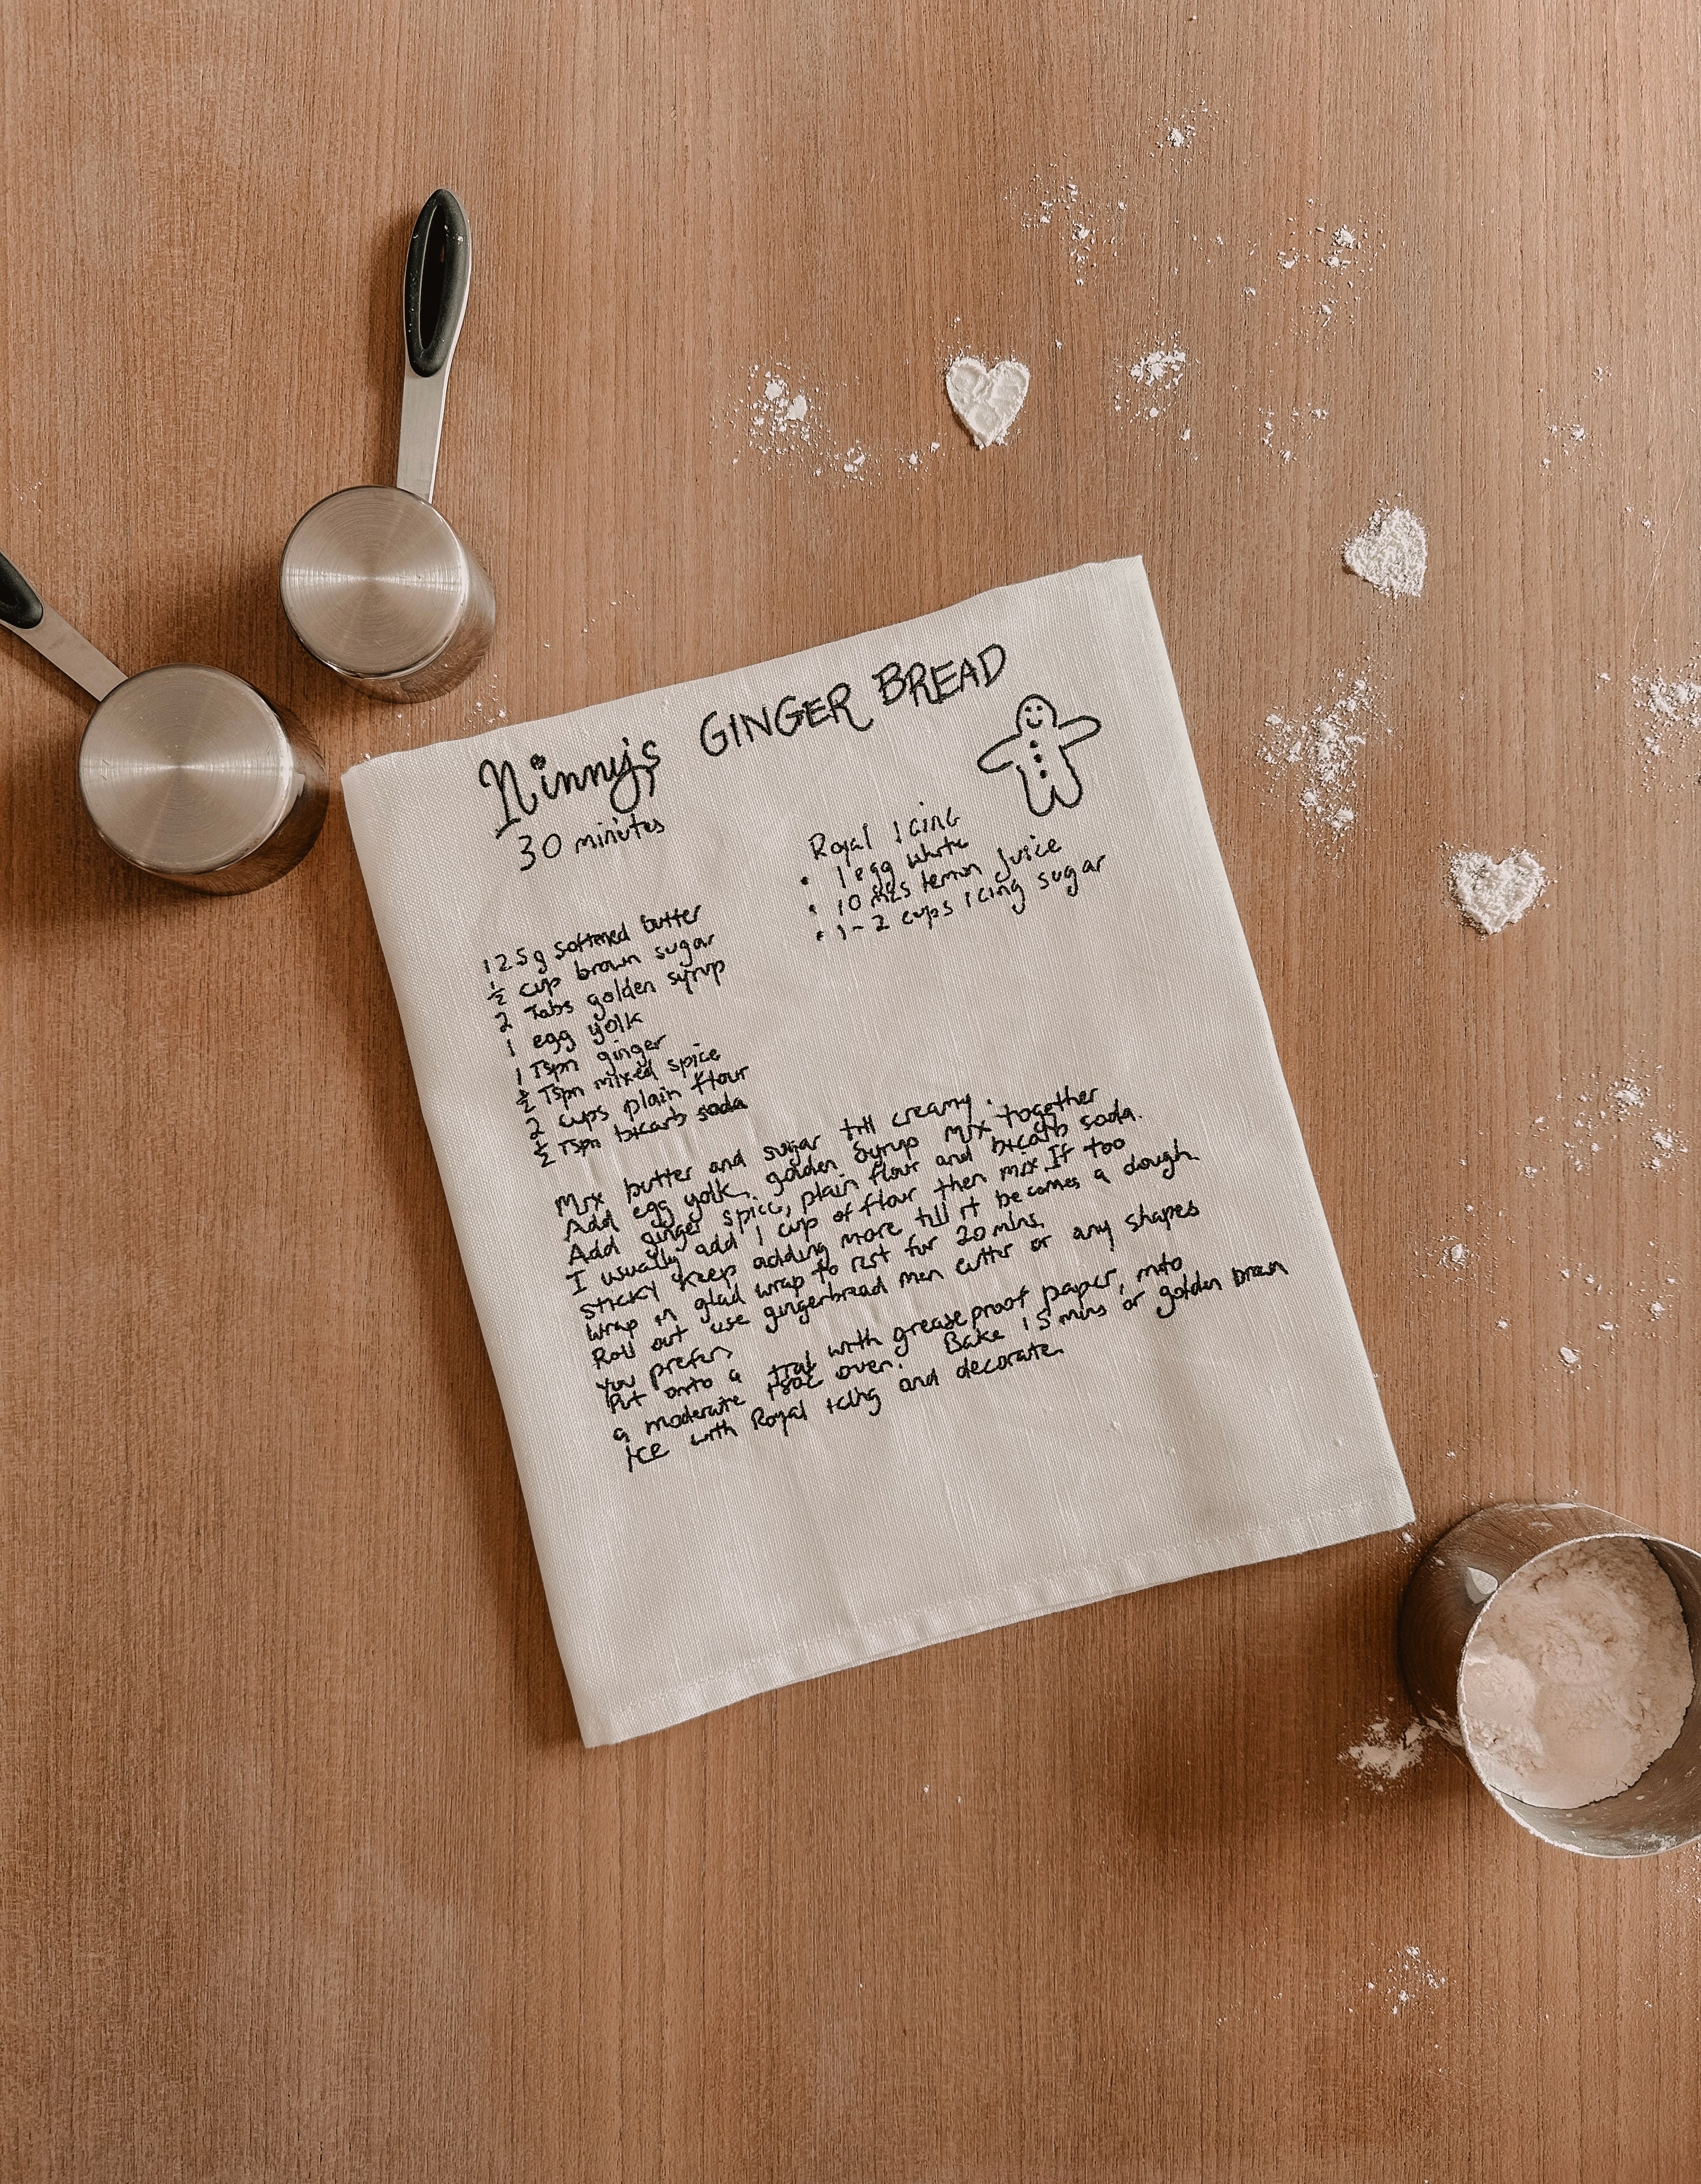 Ninny's GINGER BREAD
30 minutes
Royal Icing
• 1 egg white
• 10 mls lemon juice
• 1-2 cups icing sugar
125g softened butter
½ cup brown sugar
2 Tabs golden syrup
1 egg yolk
1 Tspn ginger
½ Tspn mixed spice
2 cups plain flour
½ Tspn bicarb soda
Mix butter and sugar till creamy.
Add egg yolk, golden syrup mix together
Add ginger spice, plain flour and bicarb soda.
I usually add 1 cup of flour then mix If too
sticky keep adding more till it becomes a dough.
Wrap in glad wrap to rest for 20 mins.
Roll out use gingerbread men cutter or any shapes
you prefer,
Put onto a tray with greaseproof paper, into
a moderate 180c oven. Bake 15 mins or golden brown
Ice with Royal icing and decorate.